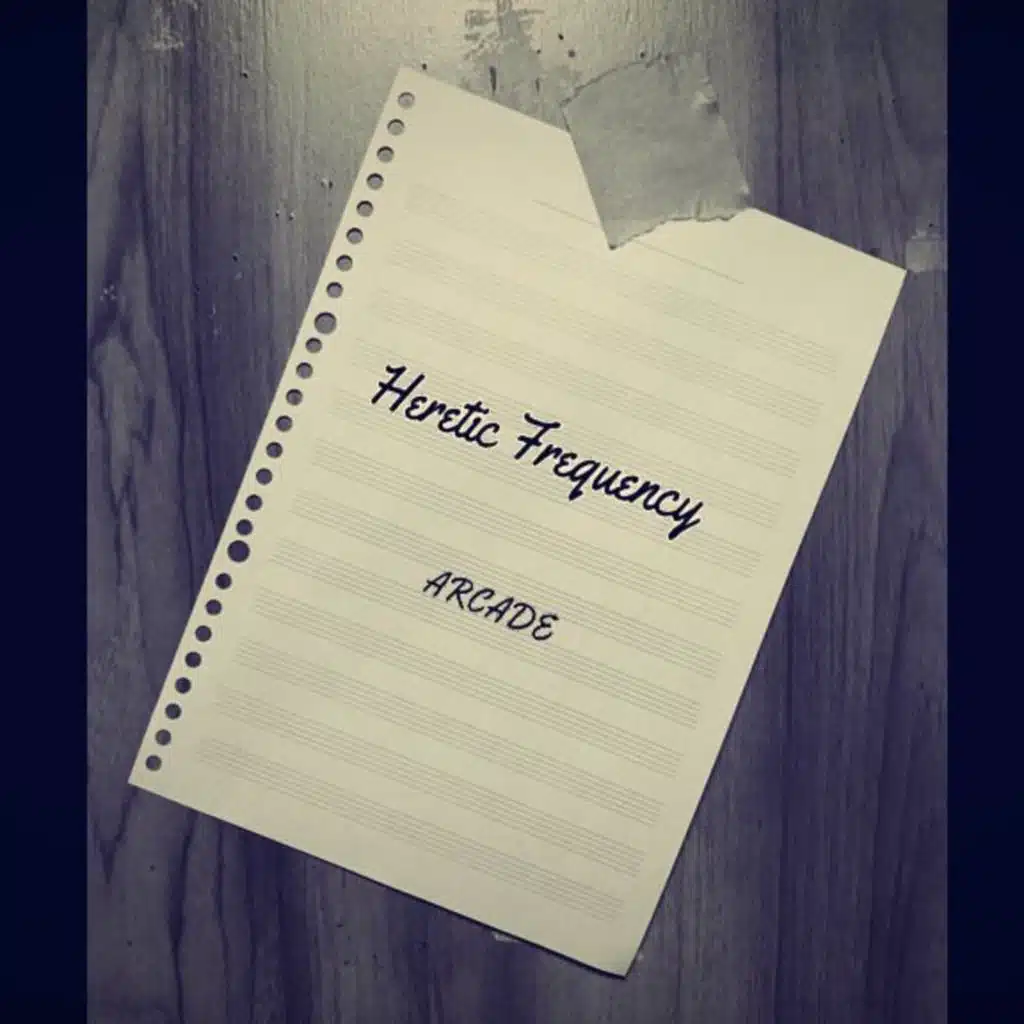 Heretic Frequency
ARCADE